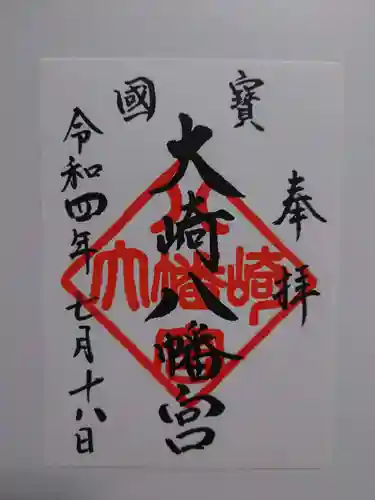 奉拝
國寳
大崎八幡宮
令和四年七月十八日
大崎八幡宮